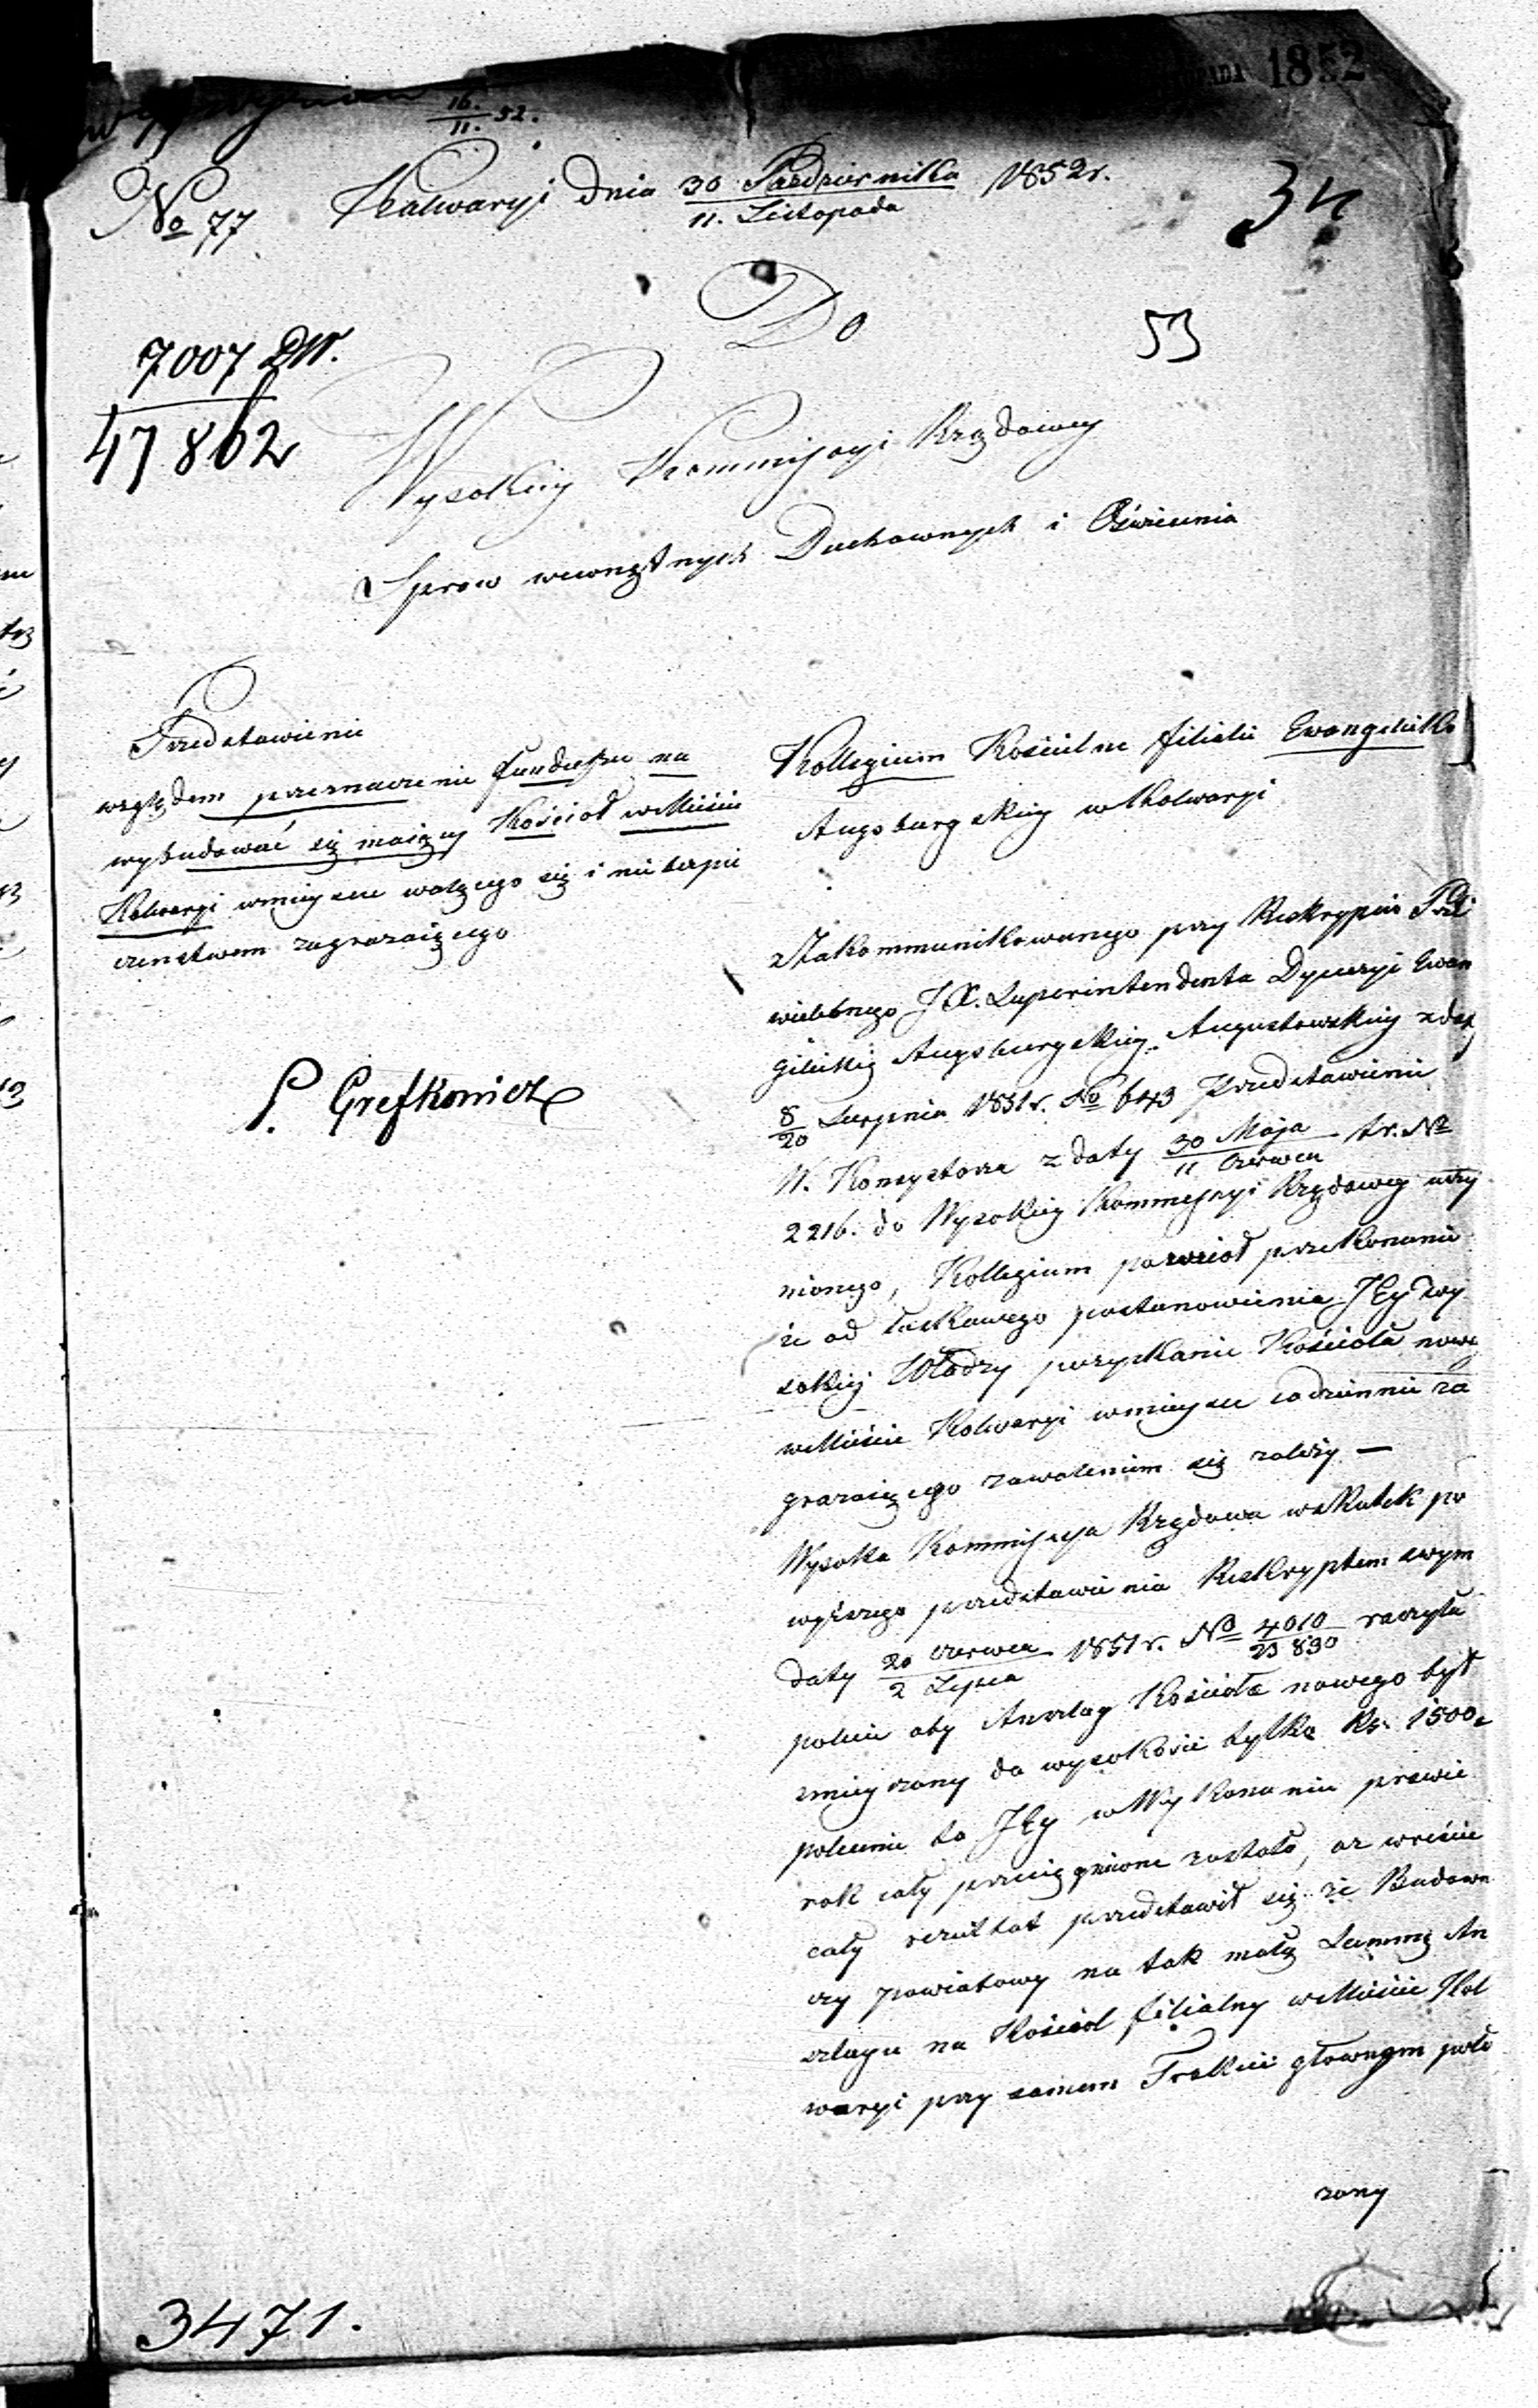 1852
16./11. 52.
No 77 Kalwaryi dnia 30 Pazdziernika/11. Listopada 1852 r.
34
Do
53
7007 DW.
47862
Wysokiey Kommissyi Rządowey
Spraw wewnętrnych Duchownych i Oświcenia
Przedstawienie
względem przeznaczenia funduszu na
wybudować się maiący Kościoł w Mieście
Kalwaryi wmieysce walącego się i niebezpie
czenstwem zagrażaiącego
P. Grefkowicz
Kollegium Kościelne filialu Ewangelicko
Augsburgskiey w Kalwaryi
Zakommunikowanego przy Reskrypcie Prze
wielebnego JX. Superintendenta Dyecezyi Ewan
gelickiey Augsburgskiey Augustowskiey z daty
8/20 Sierpnia 1851 r. No 643 Przedstawienia
W. Konsystorza z daty 30 Maja/11 Czerwca t.r. No
2216. do Wysokiey Kommissyi Rządowey uczy
nionego, Kollegium powzioł przekonanie
że od łaskawego postanowienia JEy Wy
sokiey Władzy pozyskanie Kościoła nowe
w Mieście Kalwaryi wmieysce codziennie za
grażaiącego zawaleniem się zależy —
Wysoka Kommissya Rządowa wskutek po
wyższego przedstawienia Reskryptem swym
daty 20 Czerwca/2 Lipca 1851 r. No 4010/23830 raczyła
polecić aby Anszlag Kościoła nowego był
zmieyszony do wysokości tylko Rs. 1500.
polecenie to JEy w Wykonaniu prawie
rok cały przeciągnione zostało, aż wreście
cały rezultat przedstawił się że Budowni
czy Powiatowy na tak małą Summę An
szlagu na Kościoł filialny w Mieście Kal
waryi przy samem Trakcie głownym poło
żony
3471.